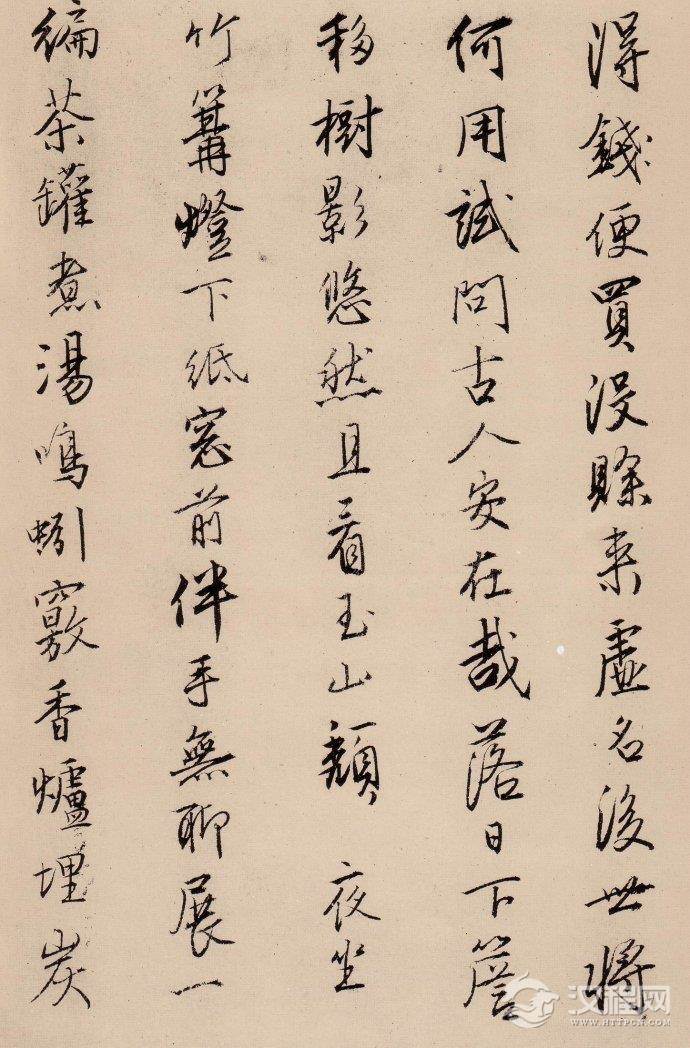 得錢便買没賒来虚名後世將
何用試問古人安在哉落日下簷
移樹影悠然且看玉山頽 夜坐
竹篝燈下紙窓前伴手無聊展一
編茶罐煮湯鳴蚓竅香爐埋炭
汉程网
WWW.HTTPCN.COM